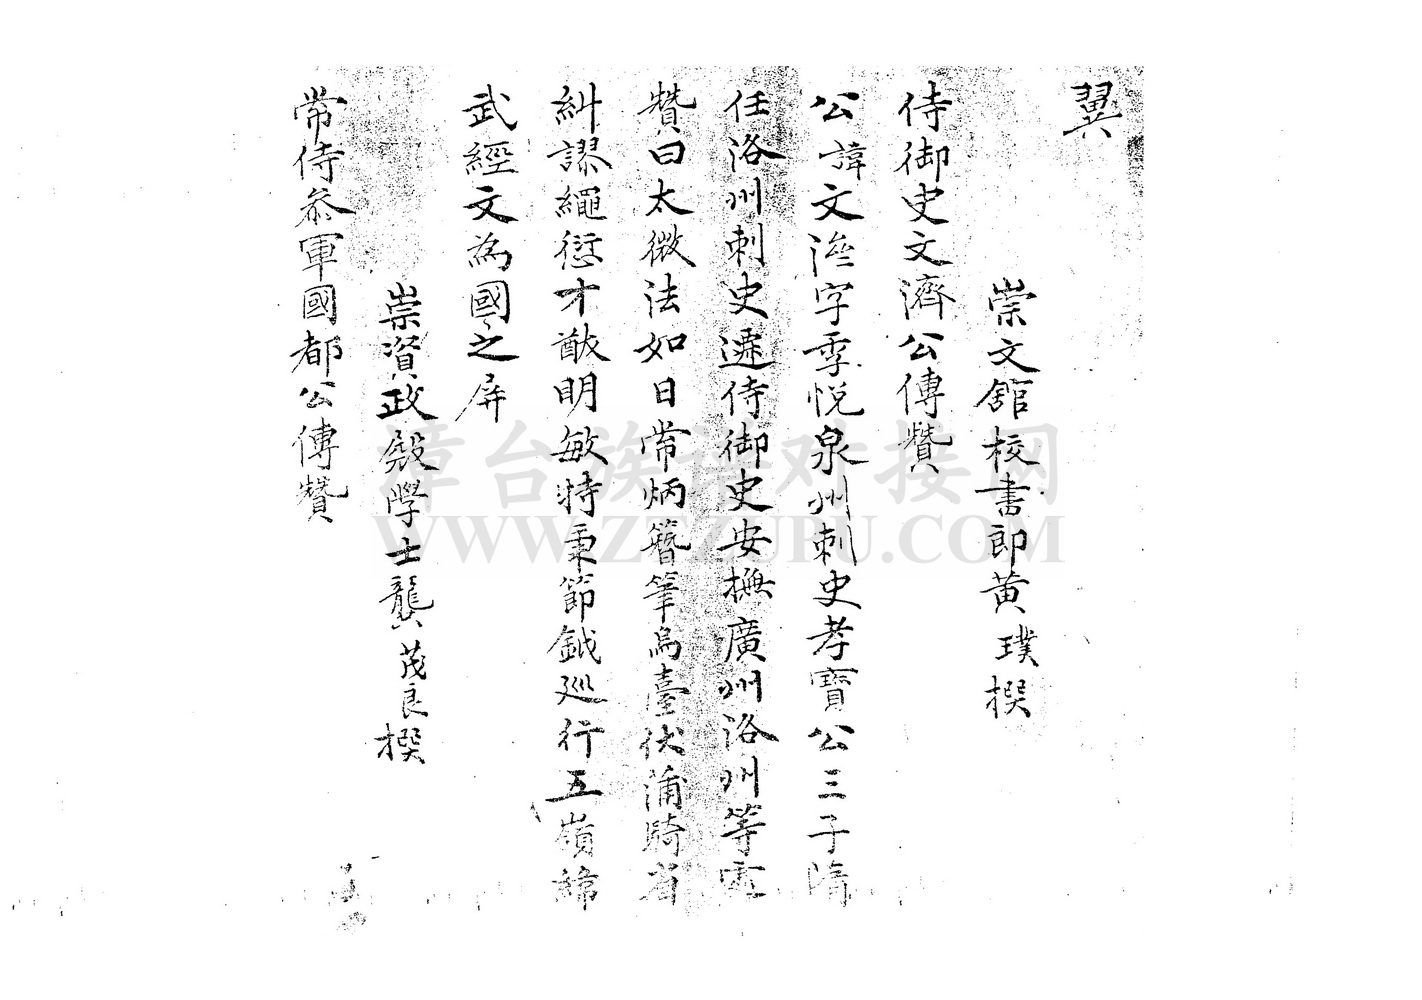 翼
崇文舘校書郎黃璞撰
侍御史文濟公傳贊
公諱文濟字季悅泉州刺史孝寶公三子隋
任洛州刺史遷侍御史安撫廣州洛州等處
贊曰太微法如日常炳簪筆烏臺伏蒲騎省
糾謬繩愆才猷明敏特秉節鉞巡行五嶺緯
武經文為國之屏
崇資政殿學士龔茂良撰
常侍叅軍國都公傳贊
漳台族谱对接网
WWW.ZTZUPU.COM